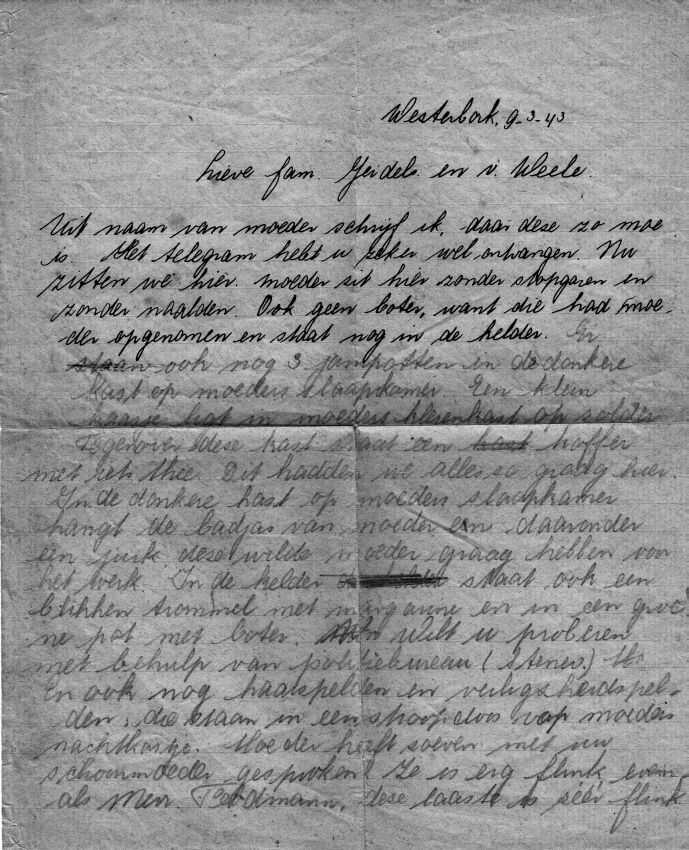 Westerbork, 9-3-43
Lieve fam. Geidels en v. Weele.
Uit naam van moeder schrijf ik, daar dese zo moe
is. Het telegram hebt u zeker wel ontvangen. Nu
zitten we hier. moeder sit hier zonder stopgaren en
zonder naalden. Ook geen boter, want die had moe-
der opgenomen en staat nog in de kelder. Er
staan ook nog 3 jampotten in de donkere
kast op moeders slaapkamer Een klein
kaasje ligt in moeders klerenkast op solder
Tegenover dese kast staat een kast koffer
met iets thee. Dit hadden we alles so graag hier.
In de donkere kast op moeders slaapkamer
hangt de badjas van moeder en daaronder
een jurk dese wilde moeder graag hebben voor
het werk. In de kelder staat ook een
blikken trommel met margarine en in een groe
ne pot met boter. Wilt u proberen
met behulp van politiebureau (stenes.)
en ook nog haarspelden en veiligheidspel-
den, die staan in een doos op moeders
nachtkastje. Moeder heeft soeven met uw
schoonmoeder gesproken. Ze is erg flink even
als Mevr. dese laaste is séér flink